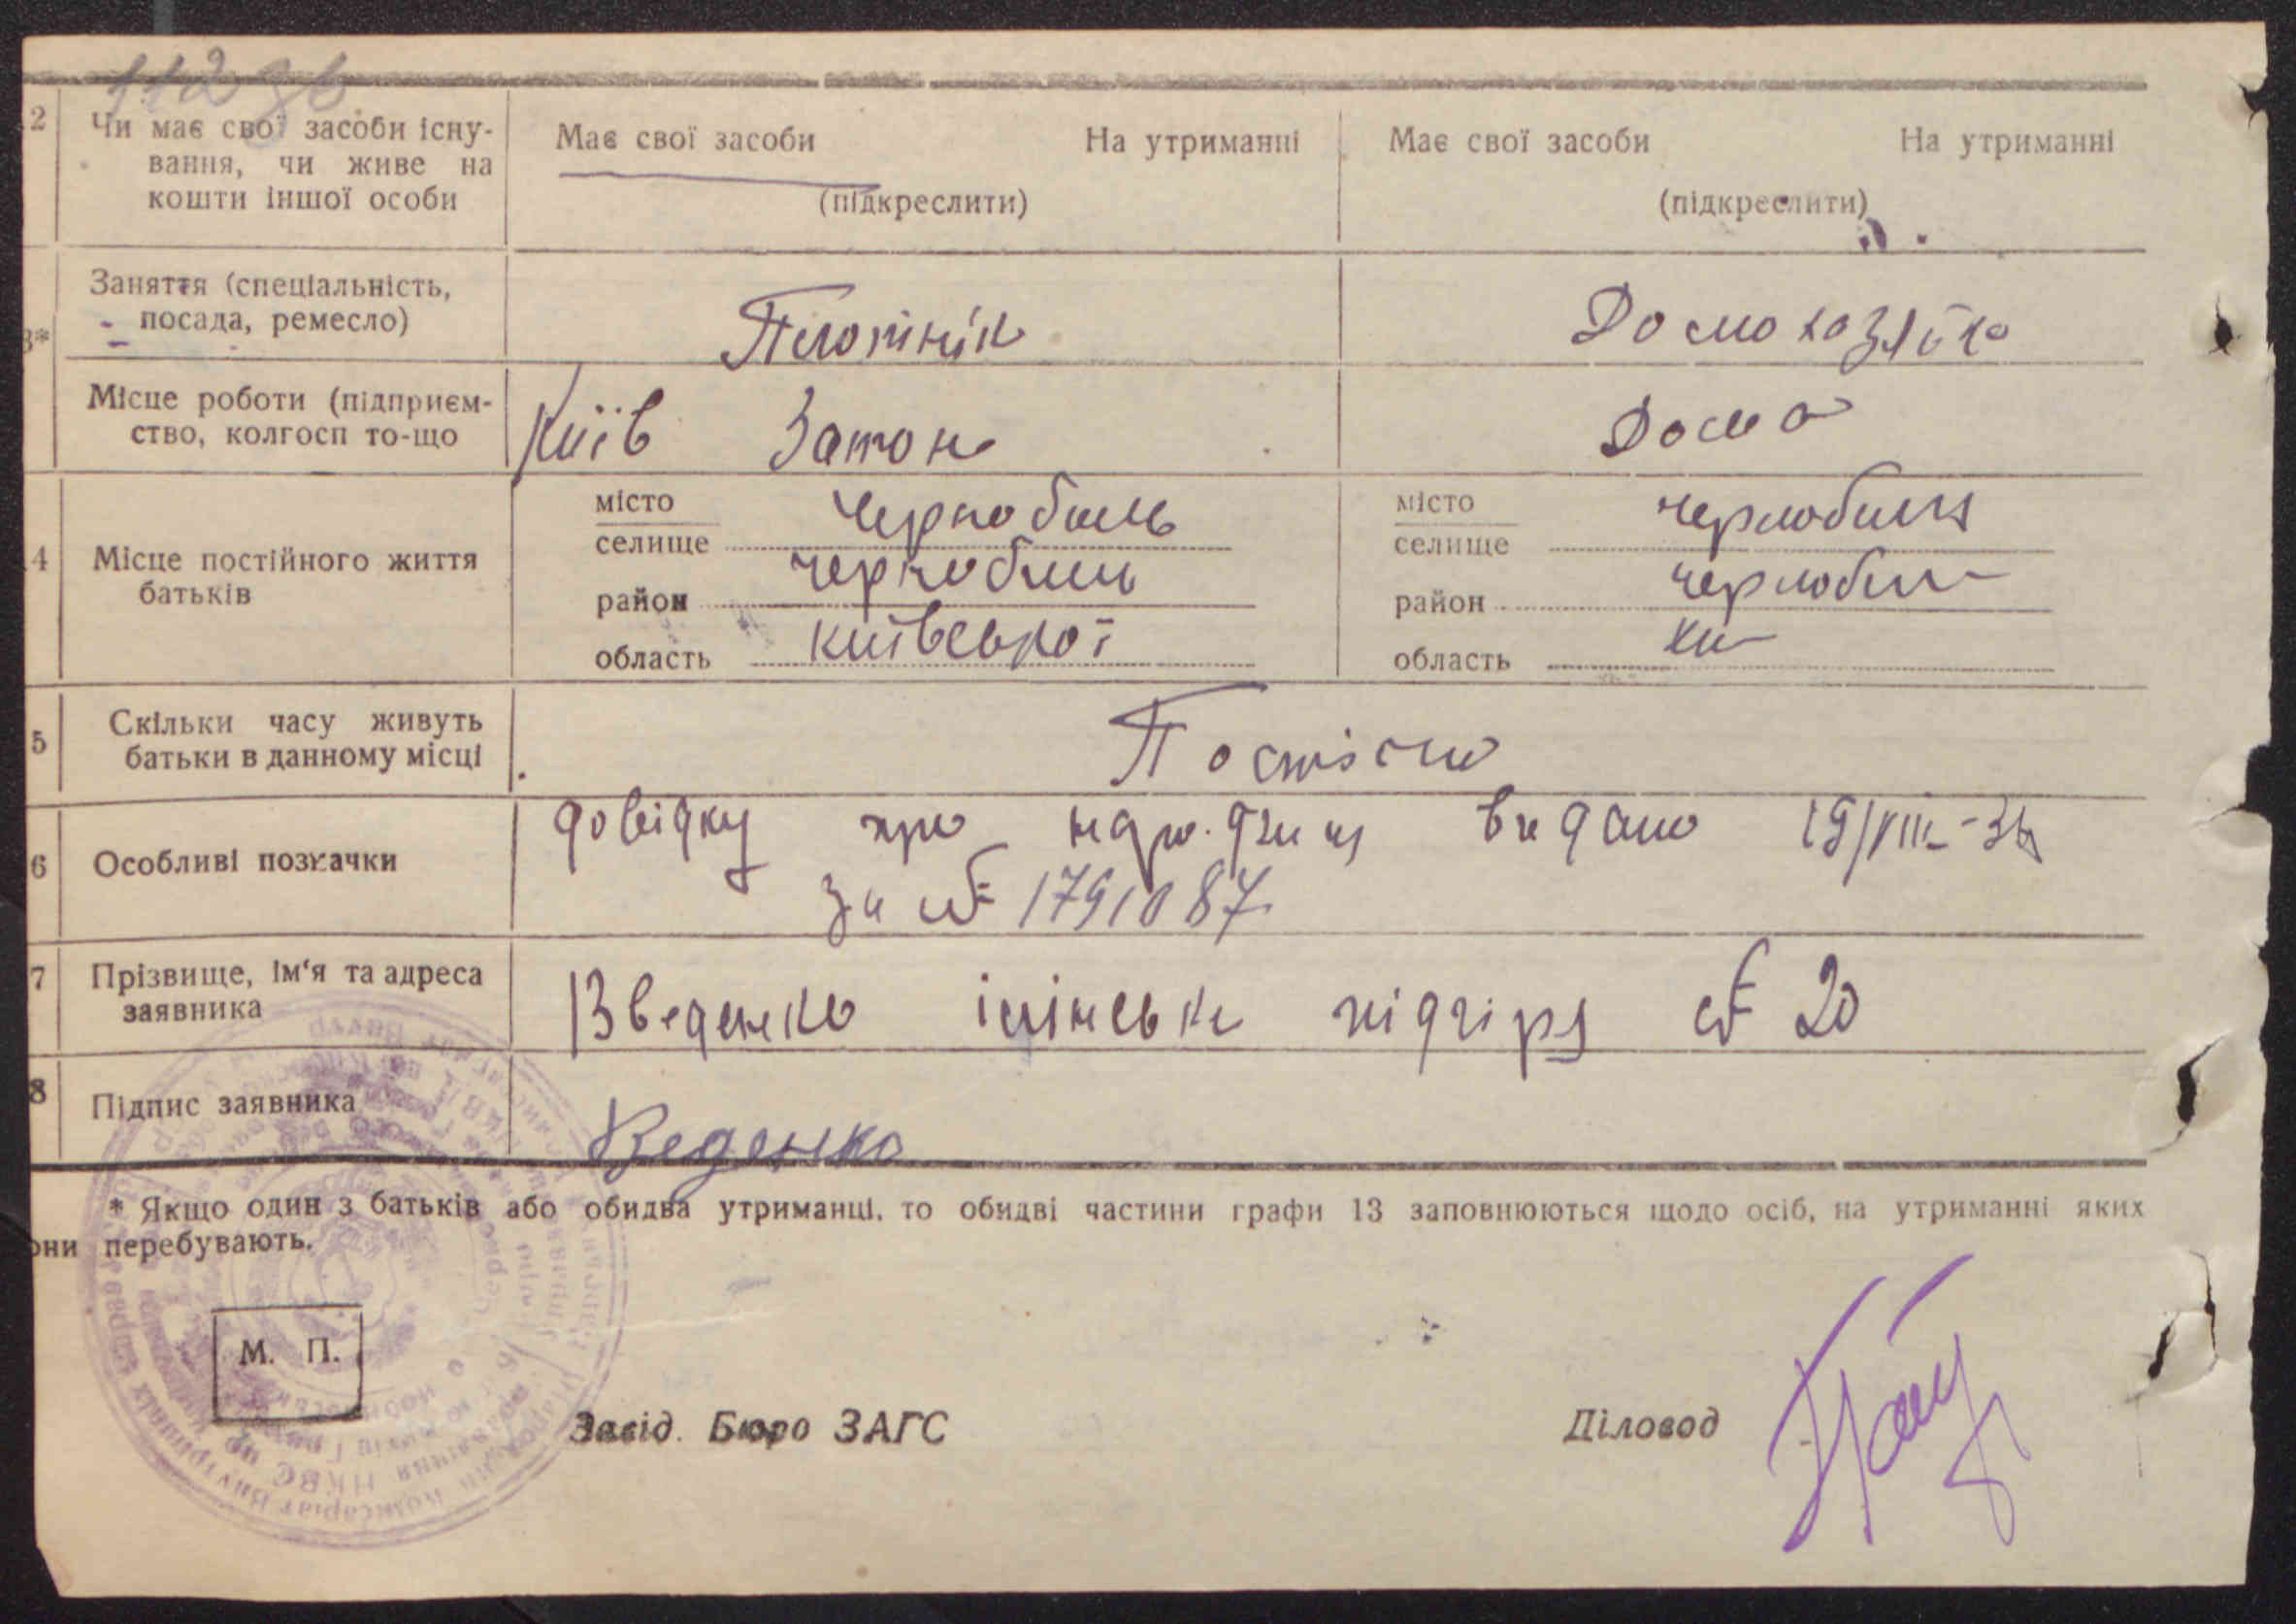 2 Чи має свої засоби існу-
вання, чи живе на
кошти іншої особи
Має свої засоби На утриманні
(підкреслити)
Має свої засоби На утриманні
(підкреслити)
3*
Заняття (спеціальність,
посада, ремесло)
Плотнік
Домохазяйка
Місце роботи (підприєм-
ство, колгосп то-що
Київ Затон
Дома
4 Місце постійного життя
батьків
місто
селище Чернобиль
район Чернобиль
область Київської
місто
селище Чернобиль
район Чернобил
область Ки
5 Скільки часу живуть
батьки в данному місці
Постійно
6 Особливі позначки
довідку про видано 19/VIII-36
за № 1791087
7 Прізвище, ім‘я та адреса
заявника
Введенко підгіря № 20
8 Підпис заявника
Веденко
* Якщо один з батьків або обидва утриманці, то обидві частини графи 13 заповнюються щодо осіб, на утриманні яких
они перебувають.
М. П.
Завід. Бюро ЗАГС
Діловод